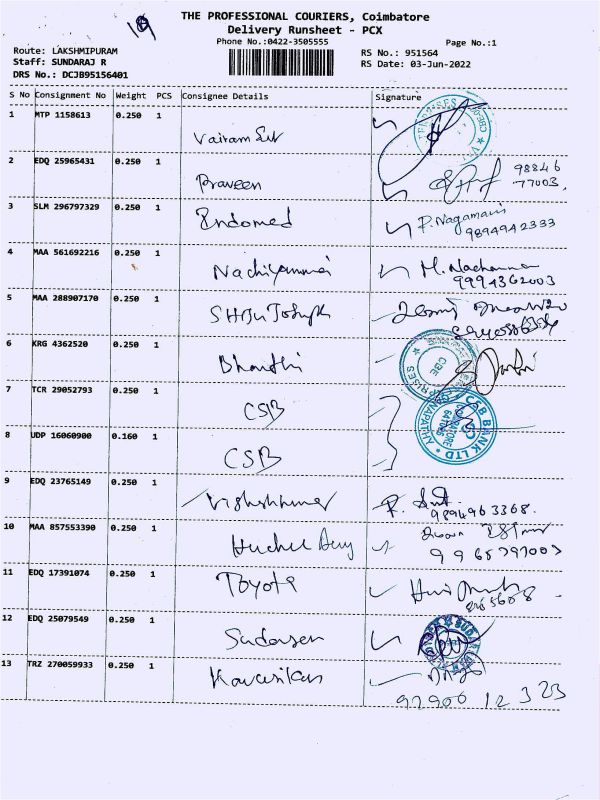 19
THE PROFESSIONAL COURIERS, Coimbatore
Delivery Runsheet - PCX
Phone No.:0422-3505555
Page No.:1
Route: LAKSHMIPURAM
RS No.: 951564
Staff: SUNDARAJ R
RS Date: 03-Jun-2022
DRS No.: DCJB95156401
S No Consignment No Weight PCS Consignee Details Signature
1 MTP 1158613 0.250 1
Vairam
2 EDQ 25965431 0.250 1
Praveen
98846
77003.
3 SLM 296797329 0.250 1
Endomed
P. Nagamani
9894942333
4 MAA 561692216 0.250 1
Nachiyammai
M.
9994362003
5 MAA 288907170 0.250 1
SHIJU Joseph
6 KRG 4362520 0.250 1
Bharathi
CBE
7 TCR 29052793 0.250 1
CSB
CSB BANK LTD
8 UDP 16060900 0.160 1
CSB
9 EDQ 23765149 0.250 1
9894963368.
10 MAA 857553390 0.250 1
9965797003
11 EDQ 17391074 0.250 1
Toyota
12 EDQ 25079549 0.250 1
Sudarsen
13 TRZ 270059933 0.250 1
92900 12323